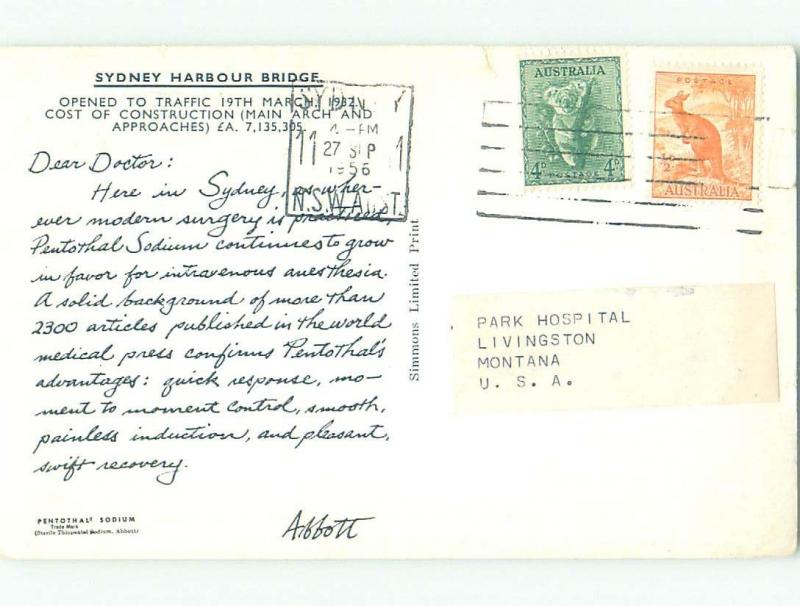 SYDNEY HARBOUR BRIDGE
OPENED TO TRAFFIC 19TH MARCH, 1932.
COST OF CONSTRUCTION (MAIN ARCH AND
APPROACHES) £A. 7,135,305.
Dear Doctor:
Here in Sydney, as wher-
ever modern surgery is practiced,
Pentothal Sodium continues to grow
in favor for intravenous anesthesia.
A solid background of more than
2300 articles published in the world
medical press confirms Pentothal's
advantages: quick response, mo-
ment to moment control, smooth,
painless induction, and pleasant,
swift recovery.
Abbott
PENTOTHAL SODIUM
Trade Mark
(Sterile Thiopental Sodium, Abbott)
Simmons Limited Print
SYDNEY
4-PM
11 27 SEP 11
1956
N.S.W. AUST.
AUSTRALIA
4D 4D
POSTAGE
POSTAGE
½D
AUSTRALIA
PARK HOSPITAL
LIVINGSTON
MONTANA
U. S. A.